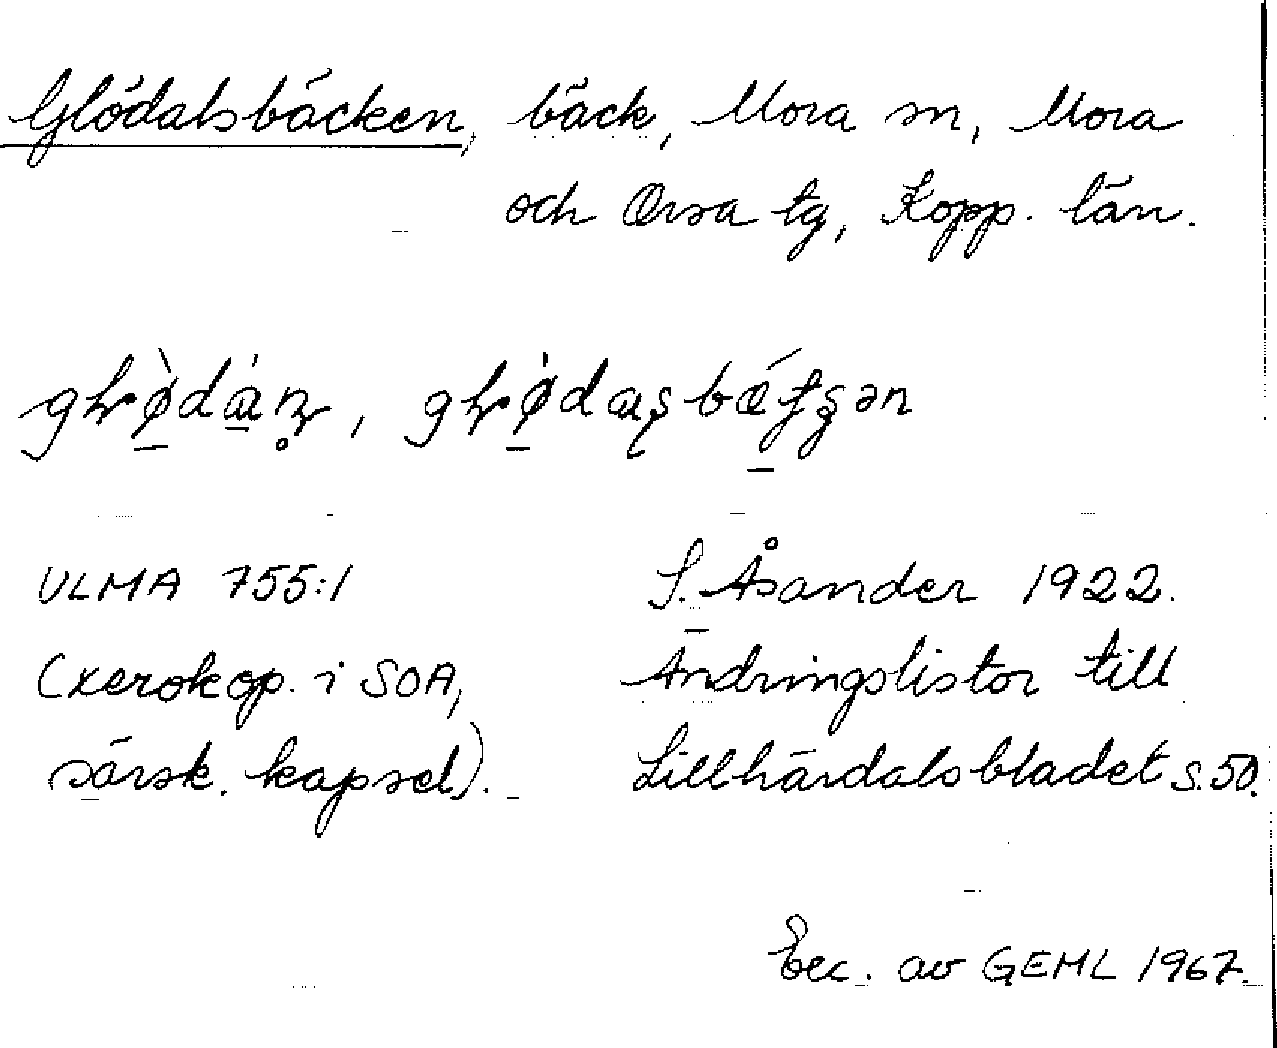 Glödalsbäcken, bäck, Mora sn, Mora
och Orsa tg, Kopp. län.
ULMA 755:1
S. Åsander 1922.
(xerokop. i SOA,
Ändringslistor till
särsk. kapsel).
Lillhärdalsbladet s. 50.
Exc. av GEML 1967.